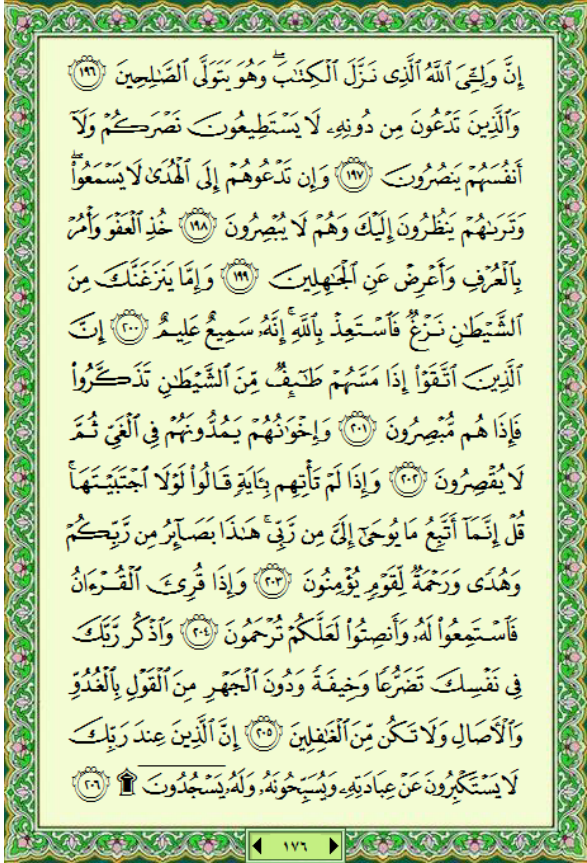 إِنَّ وَلِـِّۧيَ ٱللَّهُ ٱلَّذِى نَزَّلَ ٱلْكِتَـٰبَ ۖ وَهُوَ يَتَوَلَّى ٱلصَّـٰلِحِينَ ١٩٦
وَٱلَّذِينَ تَدْعُونَ مِن دُونِهِۦ لَا يَسْتَطِيعُونَ نَصْرَكُمْ وَلَآ
أَنفُسَهُمْ يَنصُرُونَ ١٩٧ وَإِن تَدْعُوهُمْ إِلَى ٱلْهُدَىٰ لَا يَسْمَعُوا۟ ۖ
وَتَرَىٰهُمْ يَنظُرُونَ إِلَيْكَ وَهُمْ لَا يُبْصِرُونَ ١٩٨ خُذِ ٱلْعَفْوَ وَأْمُرْ
بِٱلْعُرْفِ وَأَعْرِضْ عَنِ ٱلْجَـٰهِلِينَ ١٩٩ وَإِمَّا يَنزَغَنَّكَ مِنَ
ٱلشَّيْطَـٰنِ نَزْغٌ فَٱسْتَعِذْ بِٱللَّهِ ۚ إِنَّهُۥ سَمِيعٌ عَلِيمٌ ٢٠٠ إِنَّ
ٱلَّذِينَ ٱتَّقَوْا۟ إِذَا مَسَّهُمْ طَـٰٓئِفٌ مِّنَ ٱلشَّيْطَـٰنِ تَذَكَّرُوا۟
فَإِذَا هُم مُّبْصِرُونَ ٢٠١ وَإِخْوَٰنُهُمْ يَمُدُّونَهُمْ فِى ٱلْغَىِّ ثُمَّ
لَا يُقْصِرُونَ ٢٠٢ وَإِذَا لَمْ تَأْتِهِم بِـَٔايَةٍ قَالُوا۟ لَوْلَا ٱجْتَبَيْتَهَا ۚ
قُلْ إِنَّمَآ أَتَّبِعُ مَا يُوحَىٰٓ إِلَىَّ مِن رَّبِّى ۚ هَـٰذَا بَصَآئِرُ مِن رَّبِّكُمْ
وَهُدًى وَرَحْمَةٌ لِّقَوْمٍ يُؤْمِنُونَ ٢٠٣ وَإِذَا قُرِئَ ٱلْقُرْءَانُ
فَٱسْتَمِعُوا۟ لَهُۥ وَأَنصِتُوا۟ لَعَلَّكُمْ تُرْحَمُونَ ٢٠٤ وَٱذْكُر رَّبَّكَ
فِى نَفْسِكَ تَضَرُّعًا وَخِيفَةً وَدُونَ ٱلْجَهْرِ مِنَ ٱلْقَوْلِ بِٱلْغُدُوِّ
وَٱلْأَصَالِ وَلَا تَكُن مِّنَ ٱلْغَـٰفِلِينَ ٢٠٥ إِنَّ ٱلَّذِينَ عِندَ رَبِّكَ
لَا يَسْتَكْبِرُونَ عَنْ عِبَادَتِهِۦ وَيُسَبِّحُونَهُۥ وَلَهُۥ يَسْجُدُونَ ۩ ٢٠٦
١٧٦